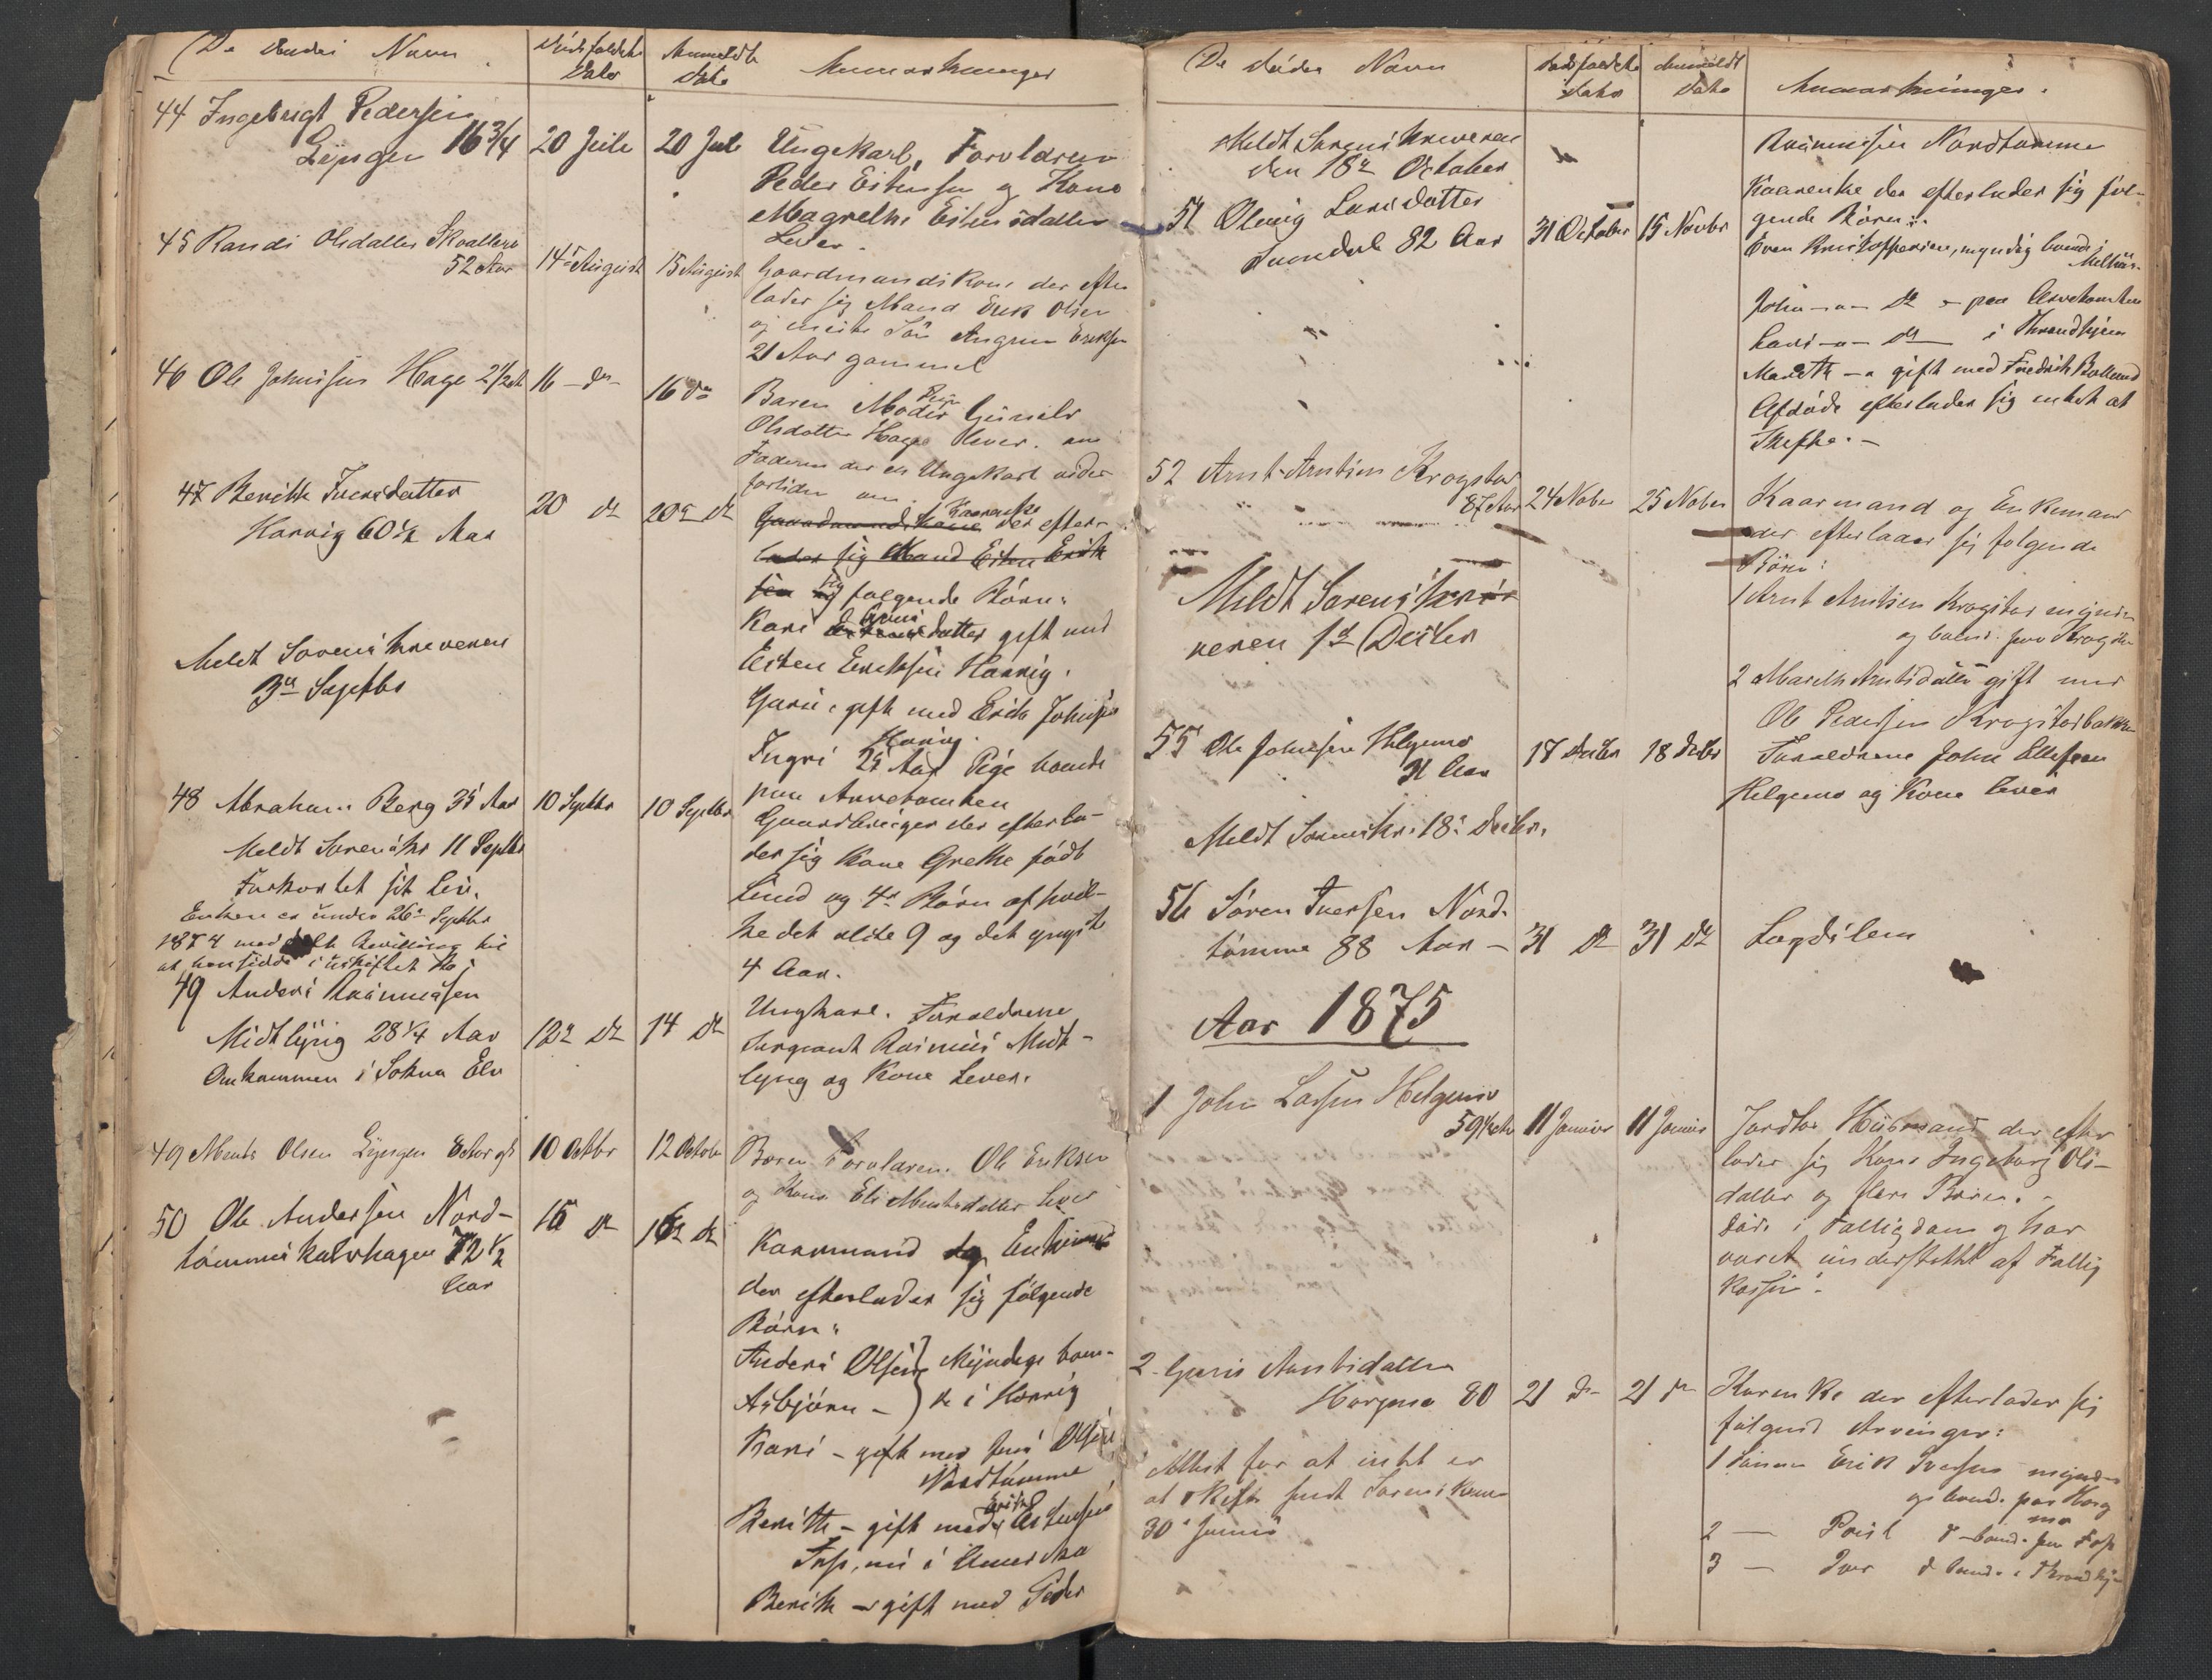 De dødes Navn
Dødsfaldets
Dato
Anmeldt
Dato
Anmærkninger
44 Ingebrigt Pedersen
Lyngen 16 3/4
20 Juli
20 Juli
Ungekarl, Forældrene
Peder Estensen og Kone
Magrethe Estensdatter
Lever.
45 Randi Olsdatter Skoallere
52 Aar
14 August
15 August
Gaardmandskone der efter
lader sig Mand Erik Olsen
og eneste Søn Eriksen
21 Aar gammel
46 Ole Johnsen Hage 2 1/2
16 do
16 do
Baren Moder Pige Gunild
Olsdatter Hage lever. om
Faderen der er Ungekarl vides
for tiden
47 Berith Iversdatter
Horvig 60 1/2 Aar
20 do
20 do
Gaardmandskone Kaarenke der efter-
lader sig Mand Esten Erik
sen og følgende Børn:
Kari datter gift med
Esten Eriksen Horvig.
Guru, gift med Erik Johnsen
Horvig.
Ingri 25 Aar Pige boende
paa Arvetomten
Meldt Sorenskriveren
3 Septbr
48 Abraham Berg 35 Aar
10 Septbr
10 Septbr
Gaardbruger der efterla-
der sig Kone Grethe født
Lund og 4 Børn af hvil-
ke det ældte 9 og det yngste
4 Aar.
Meldt Sorenskr 11 Septbr
Forkortet sit Liv.
Enken er under 26 Septbr
1874 meddelt Bevilling til
at hensidde i uskiftet Bo
49 Anders Rasmussen
Midtlyng 28 1/4 Aar
Omkommen i Sokna Elv
12 do
14 do
Ungkarl. Forældrene
Sergeant Rasmus Midt-
lyng og Kone Lever.
49 Mentz Olsen Lyngen 8 Aar
10 Octbr
12 Octobr
Baren Forældren. Ole Eriksen
og Kone Eli Mentsdatter Lever
50 Ole Andersen Nord-
tømme kalvhagen 72 1/2
Aar
15 do
16 do
Kaarmand og Enkemand
der efterlader sig følgende
Børn:
Anders Olsen } Myndige boen-
Asbjørn - } de i Horvig
Kari - gift med Jens Olsen
Nordtømme
Berith - gift med Erik Estensen
Fossp, nu i Amerika
Berith - gift med Peder
De dødes Navn
Dødsfaldets
Dato
Anmeldt
Dato
Anmærkninger.
Meldt Sorenskriveren
den 18 October
Rasmussen Nordtømme
51 Olaug Larsdatter
Sundal 82 Aar
31 October
15 Novbr
Kaarenke der efterlader sig føl-
gende Børn:
Even Kristoffersen, myndig boende i
Melhus.
John - - do - paa Arvetomten
Lars - - do i Throndhjem
Marith - - gift med Fredrik Bollund
Afdøde efterlader sig enket at
Skifte. -
52 Arnt Arntsen Krogstad
87 Aar
24 Novbr
25 Novbr
Kaarmand og Enkemand
der efterlader sig følgende
Børn:
1 Arnt Arntsen Krogstad myndig
og boende paa Krogstad
2 Marith Arntsdatter gift med
Ole Pedersen Krogstadbakken
Meldt Sorenskri-
veren 1 Decbr
55 Ole Johnsen Helgemo
31 Aar
17 Decbr
18 Decbr
Forældrene John Ellefsen
Helgemo og Kone lever
Meldt Sorenskr. 18 Decbr.
56 Søren Iversen Nord-
tømme 88 Aar -
31 do
31 do
Lægdslem
Aar 1875
1 John Larsen Helgemo
59 1/2 Aar
11 Januar
11 Januar
Jordløs Husmand der efter
lader sig Kone Ingeborg Ols-
datter og flere Børn. -
Døde i Fattigdom og har
været understøttet af Fattig
Kassen.
2 Guru Arntsdatter
Horgmo 80
21 do
21 do
Karenke der efterlader sig
følgende Arvinger:
1 Sønnen Erik Iversen myndig
og boende paa Horg
mo
2 - Povel d - boende paa Fosp
3 - Iver d boende i Throndhj
Attest for at intet er
at skifte sendt Sorenskriv
30 Januar